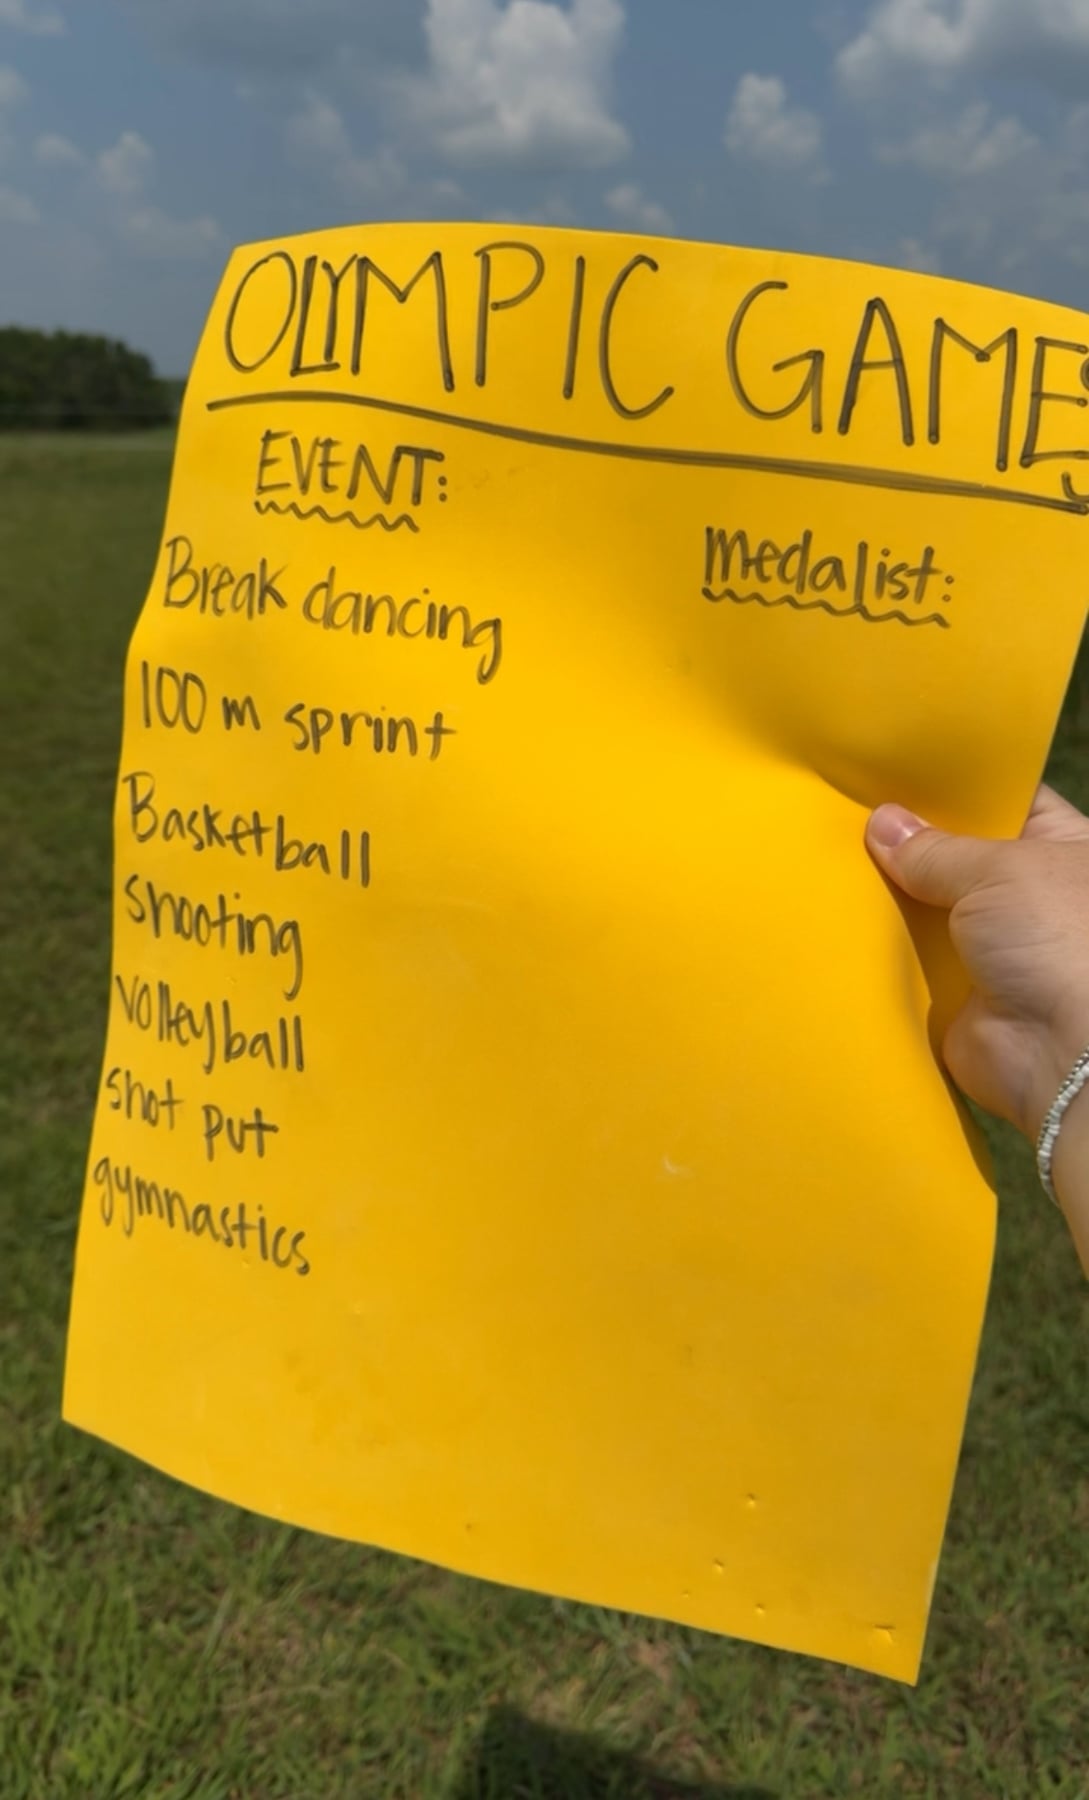 OLYMPIC GAMES
EVENT:
medalist:
Break dancing
100 m sprint
Basketball
shooting
volleyball
shot put
gymnastics